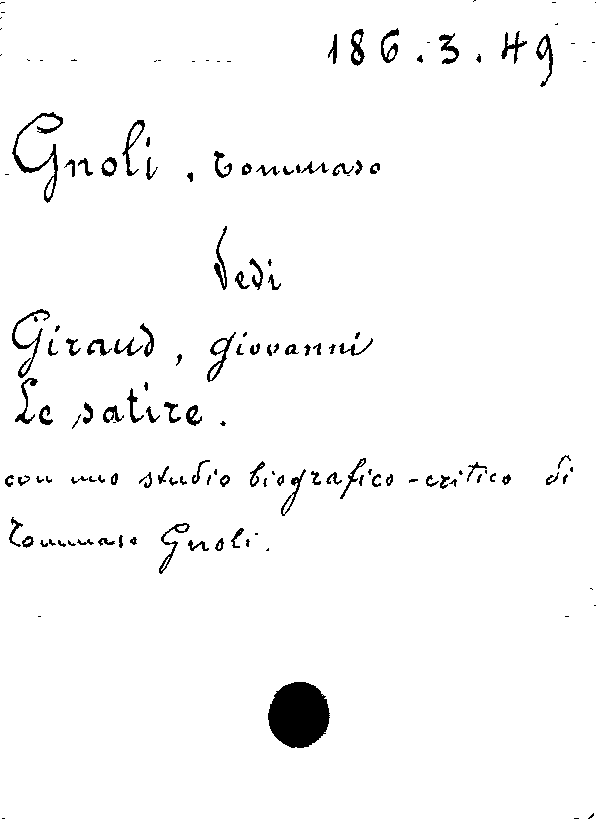 186.3.49
Gnoli, Tommaso
Vedi
Giraud, Giovanni
Le satire.
con uno studio biografico-critico di
Tommaso Gnoli.